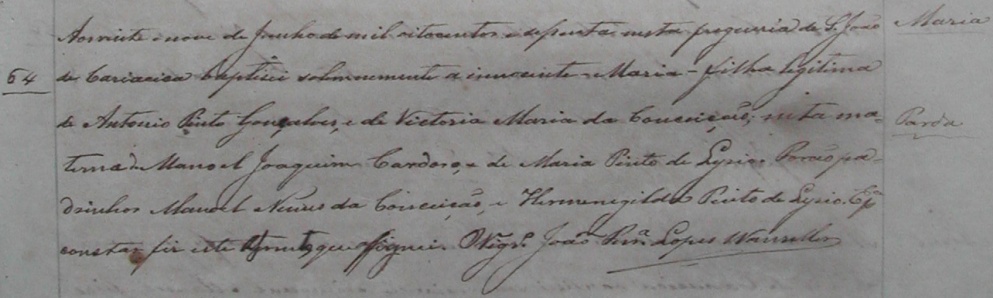 Aos vinte e nove de Junho de mil oitocentos e sepenta nesta freguesia de S. João
Maria
64
de Cariacica baptisei solemnemente a innocente Maria - filha legitima
de Antonio Pinto Gonçalves, e de Victoria Maria da Conceição; neta ma-
Parda
terna de Manoel Joaquim Cardoso, e de Maria Pinto de Lyrio. Forão pa-
drinhos Manoel Neves da Conceição, e Hermenegilda Pinto de Lyrio. E pª
constar fiz este que assignei. O Vigrº João Lopes Wanzeller